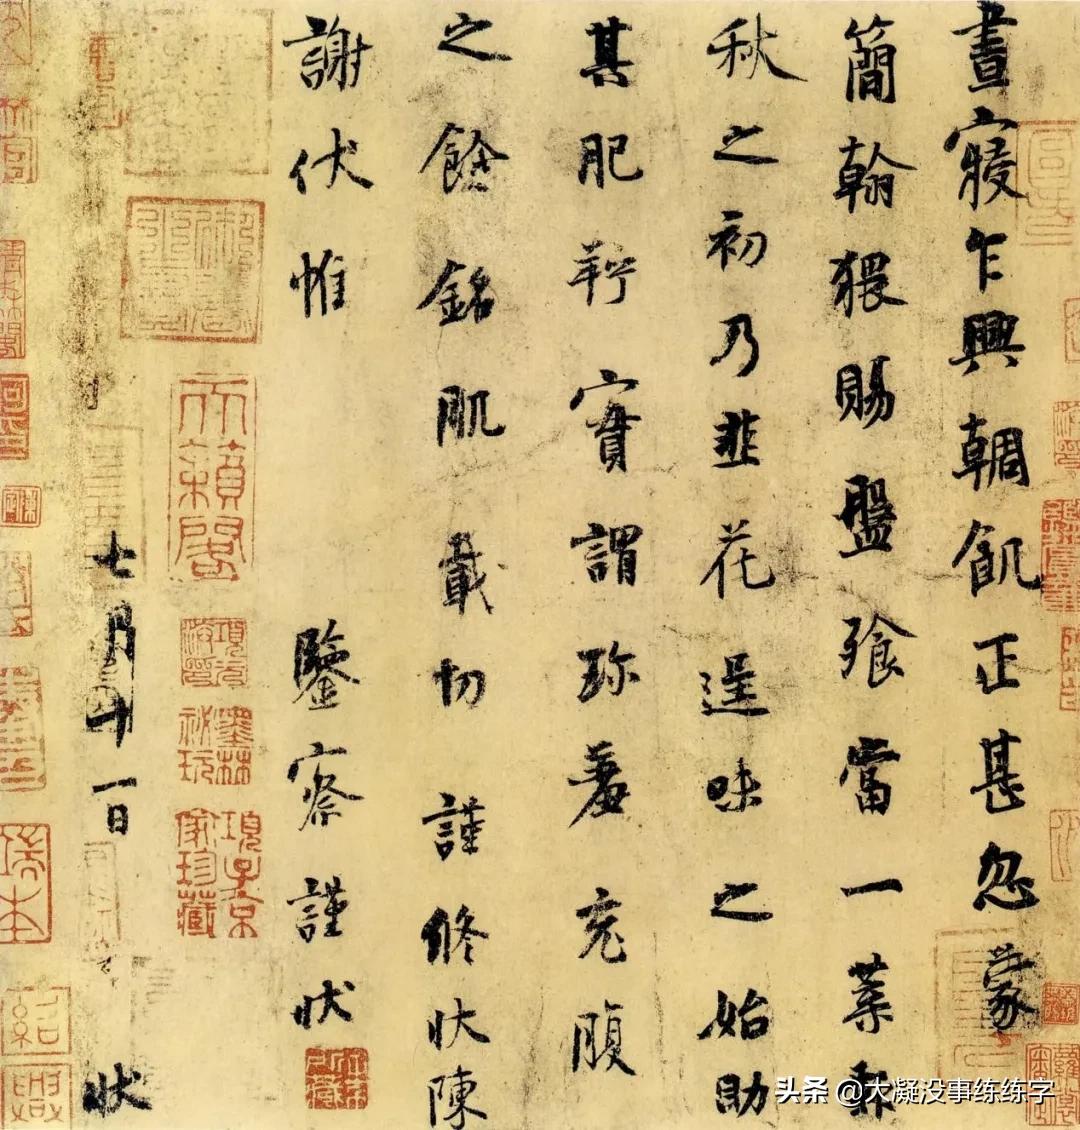 晝寢乍興輖飢正甚忽蒙
簡翰猥賜盤飧當一葉報
秋之初乃韭花逞味之始助
其肥羜實謂珍羞充腹
之餘銘肌載切謹脩狀陳
謝伏惟 鑒察謹狀
七月十一日 狀
天籟閣
墨林祕玩
項子京家珍藏
紹興
头条 @大凝没事练练字